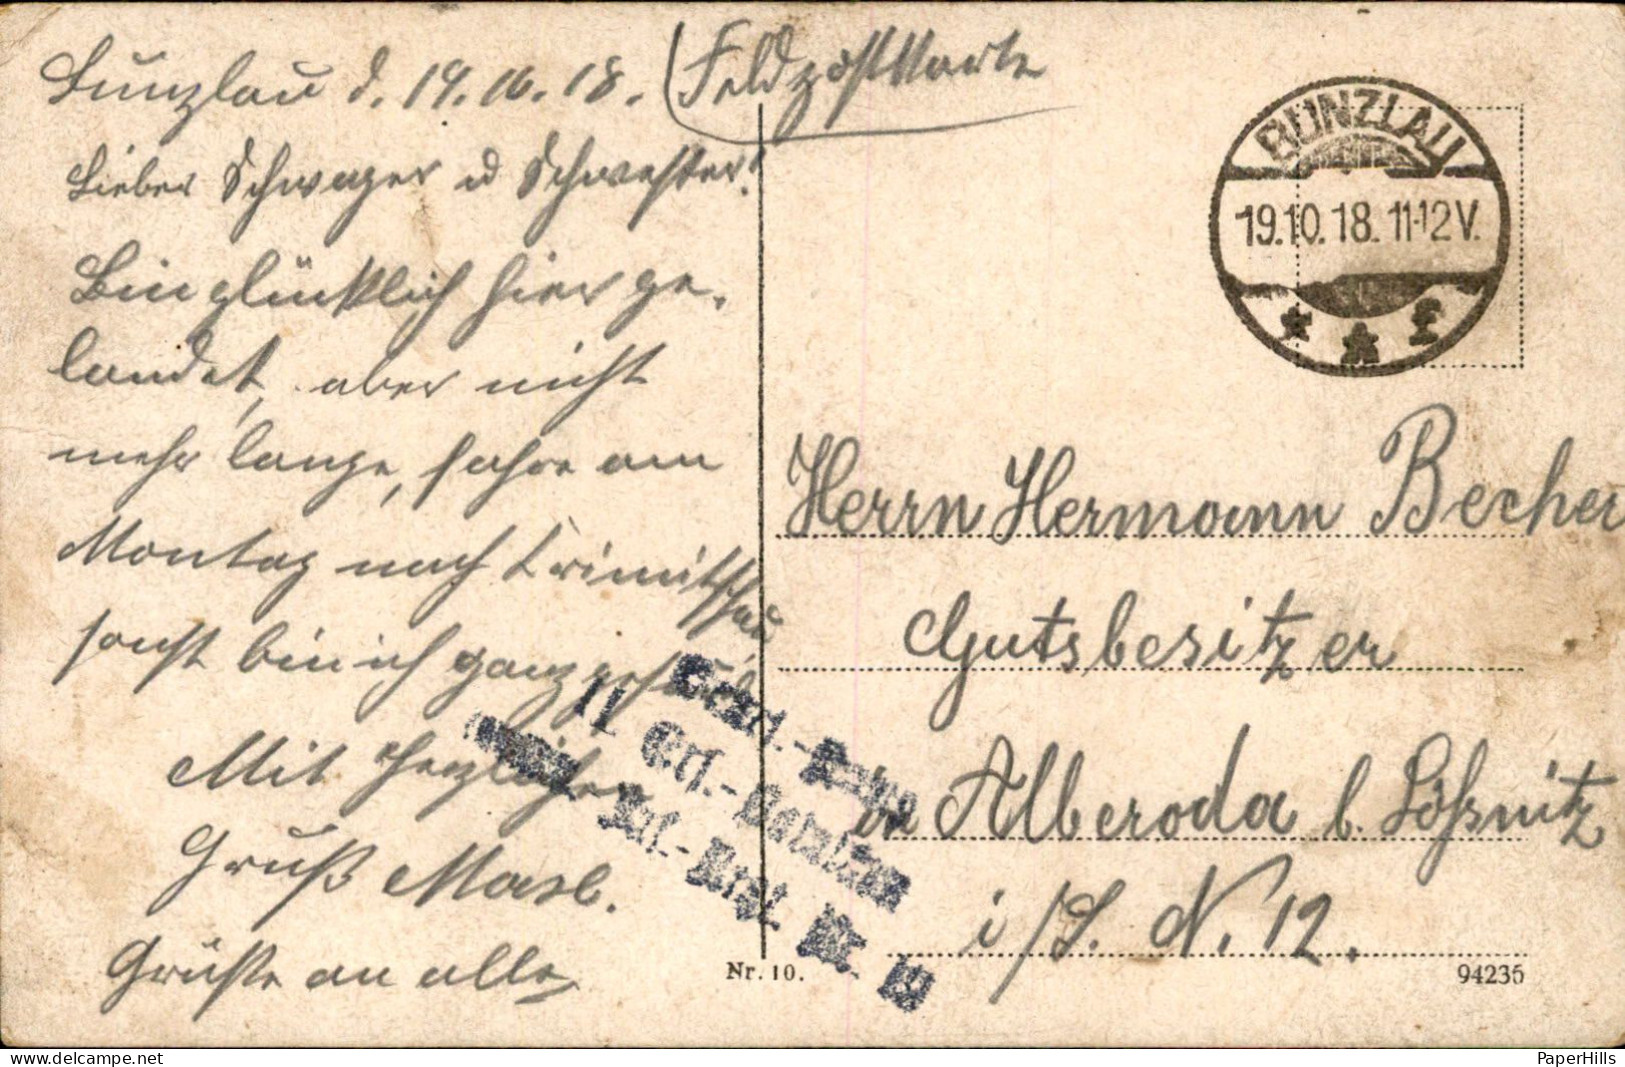 Bunzlau d. 19.10.18.
(Feldpostkarte
Lieber Schwager u Schwester!
Bin glücklich hier ge-
landet, aber nicht
mehr lange, fahre am
Montag nach Crimitschau
sonst bin ich ganz gesund
Mit herzlichen
Gruß
Grüße an alle
BUNZLAU
19.10.18. 11-12V.
Herrn Hermann Becher
Gutsbesitzer
in Alberoda b. Lößnitz
i/S. N. 12.
II. Ers.-Bataillon
Nr. 10.
94235
PaperHills